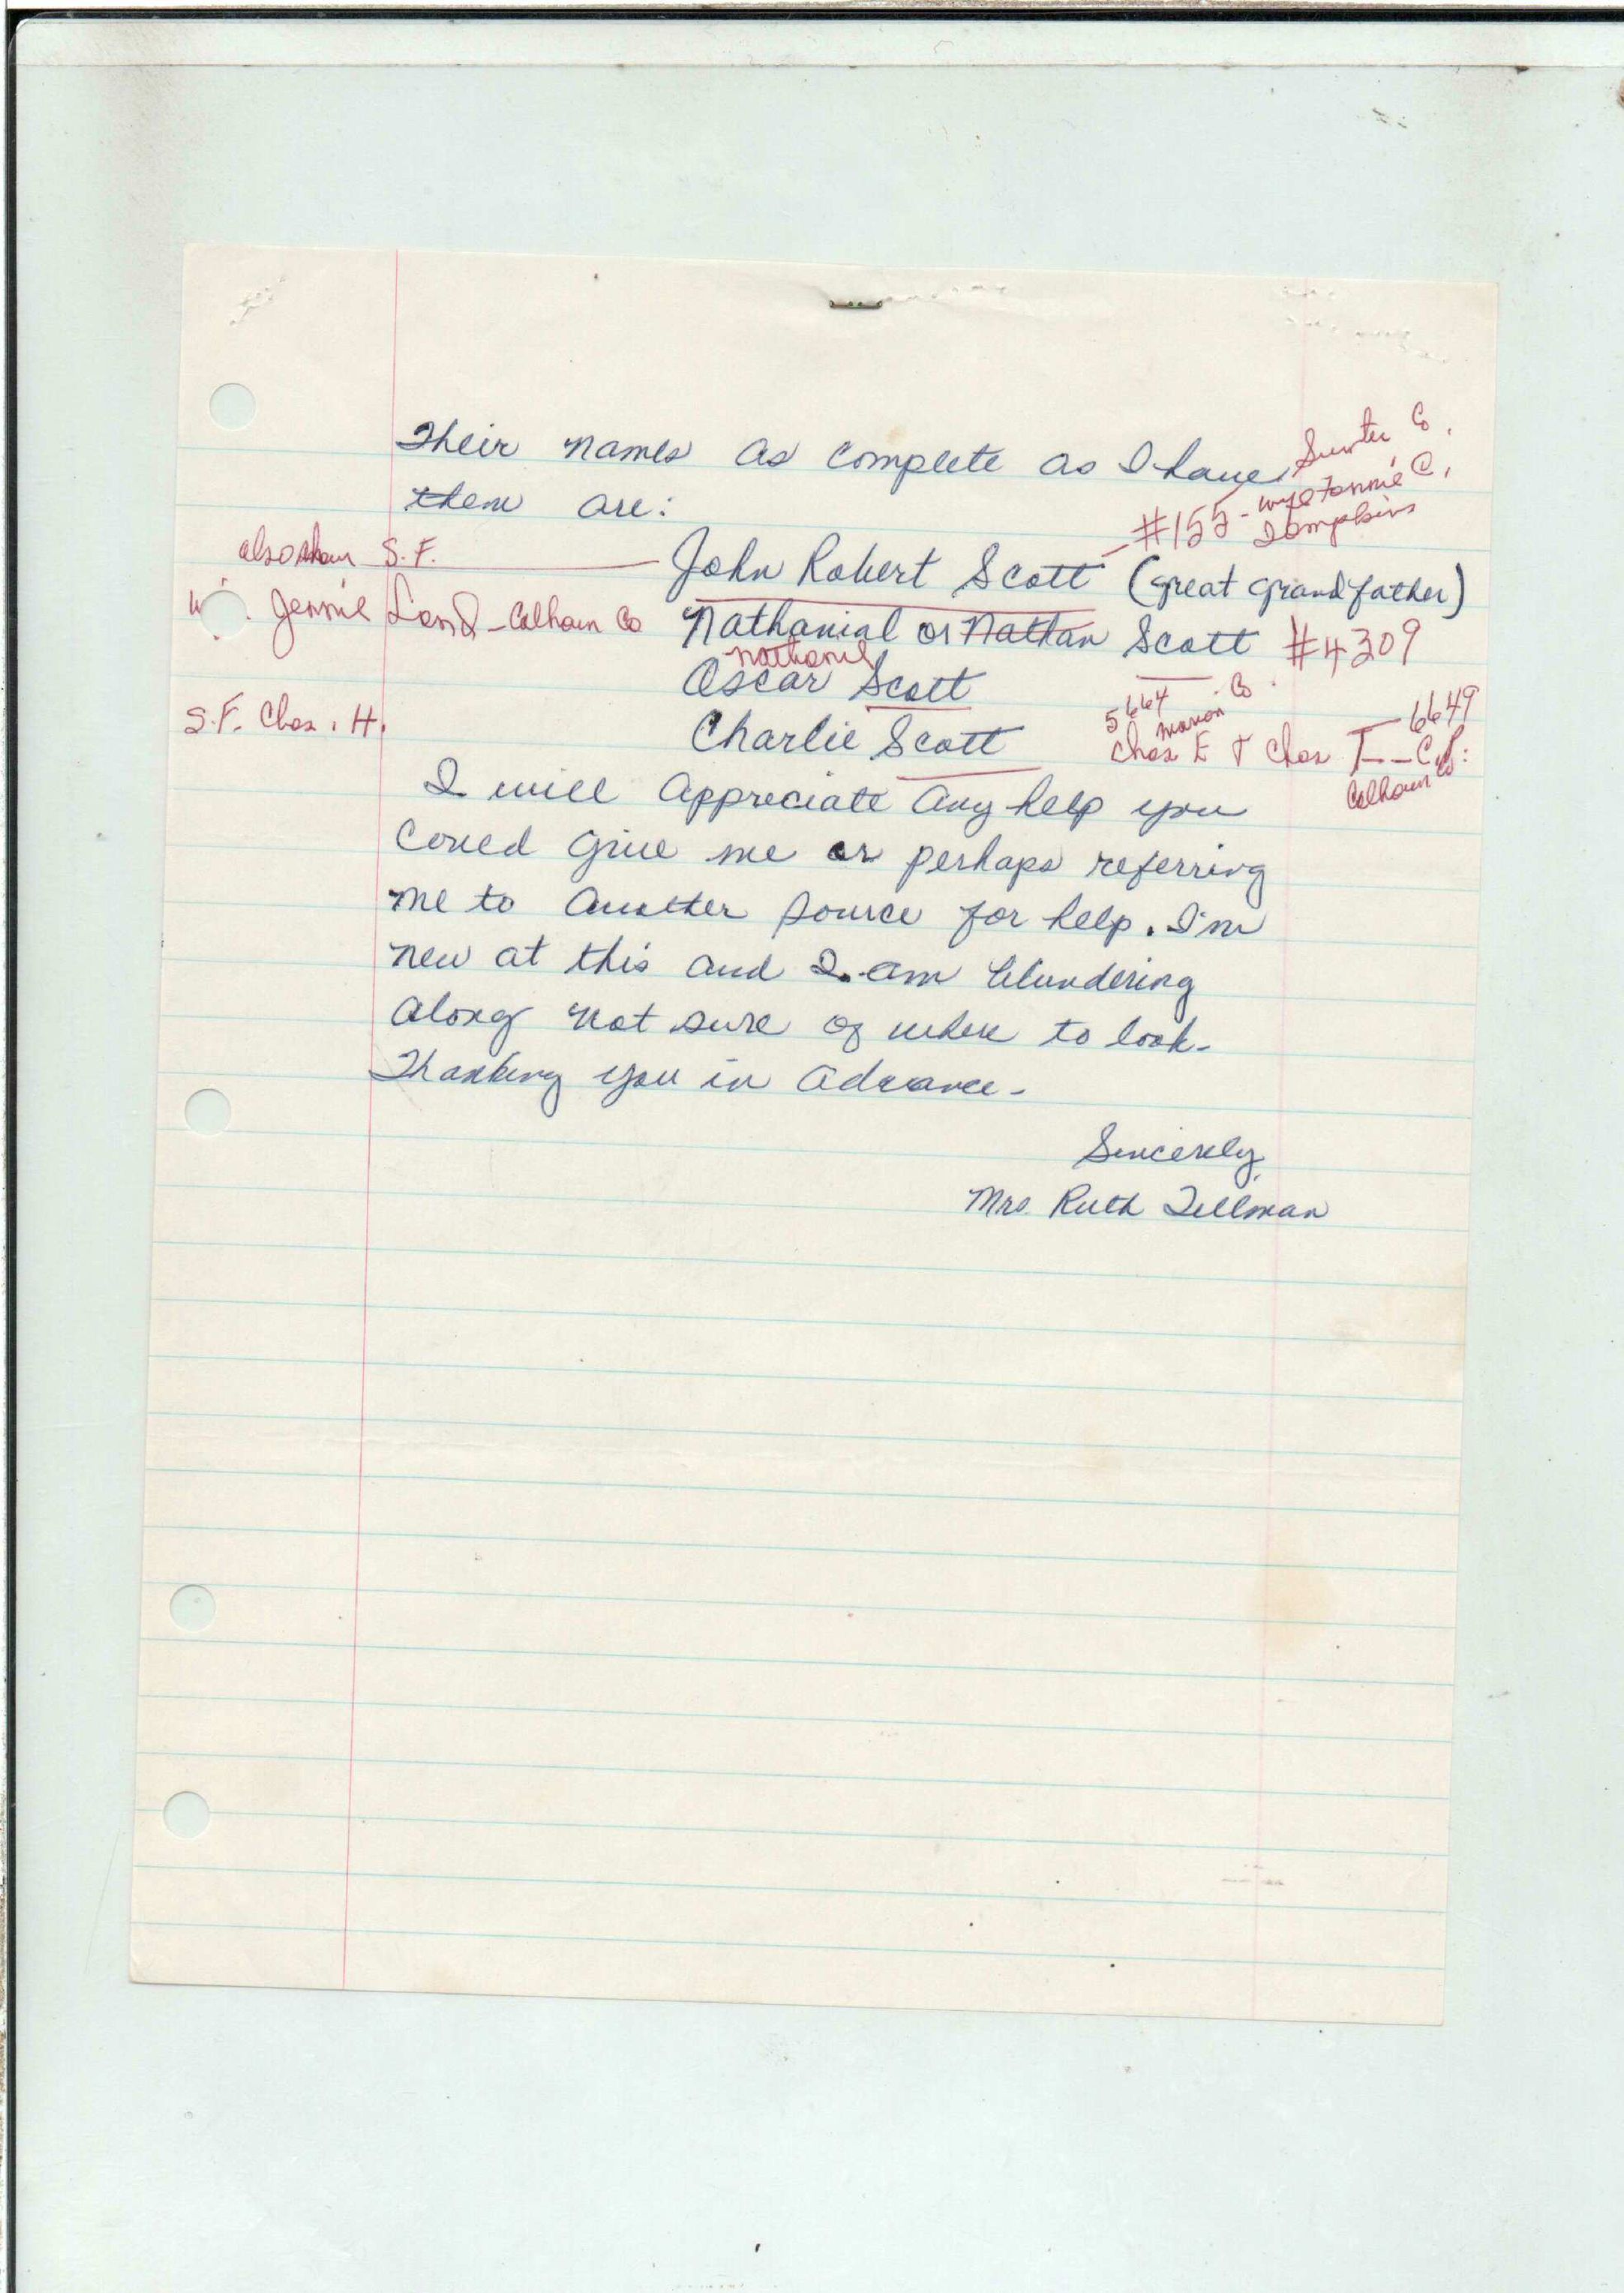 Sumter Co.
Their names as complete as I have
wife Fannie C.
them are:
#155 - Tompkins
also S.F.
John Robert Scott (great grandfather)
Jennie Land - Calhoun Co
Nathanial or Nathan Scott #4309
Nathaniel
Oscar Scott
5664 Marion Co.
6649
S.F. Chas. H.
Charlie Scott
Chas E & Chas T
Calhoun Co
I will appreciate any help you
could give me or perhaps referring
me to another source for help. I'm
new at this and I am blundering
along not sure of where to look.
Thanking you in advance.
Sincerely,
Mrs. Ruth Tillman